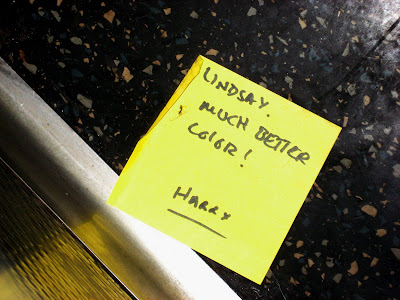 LINDSAY.
MUCH BETTER
COLOR!
HARRY